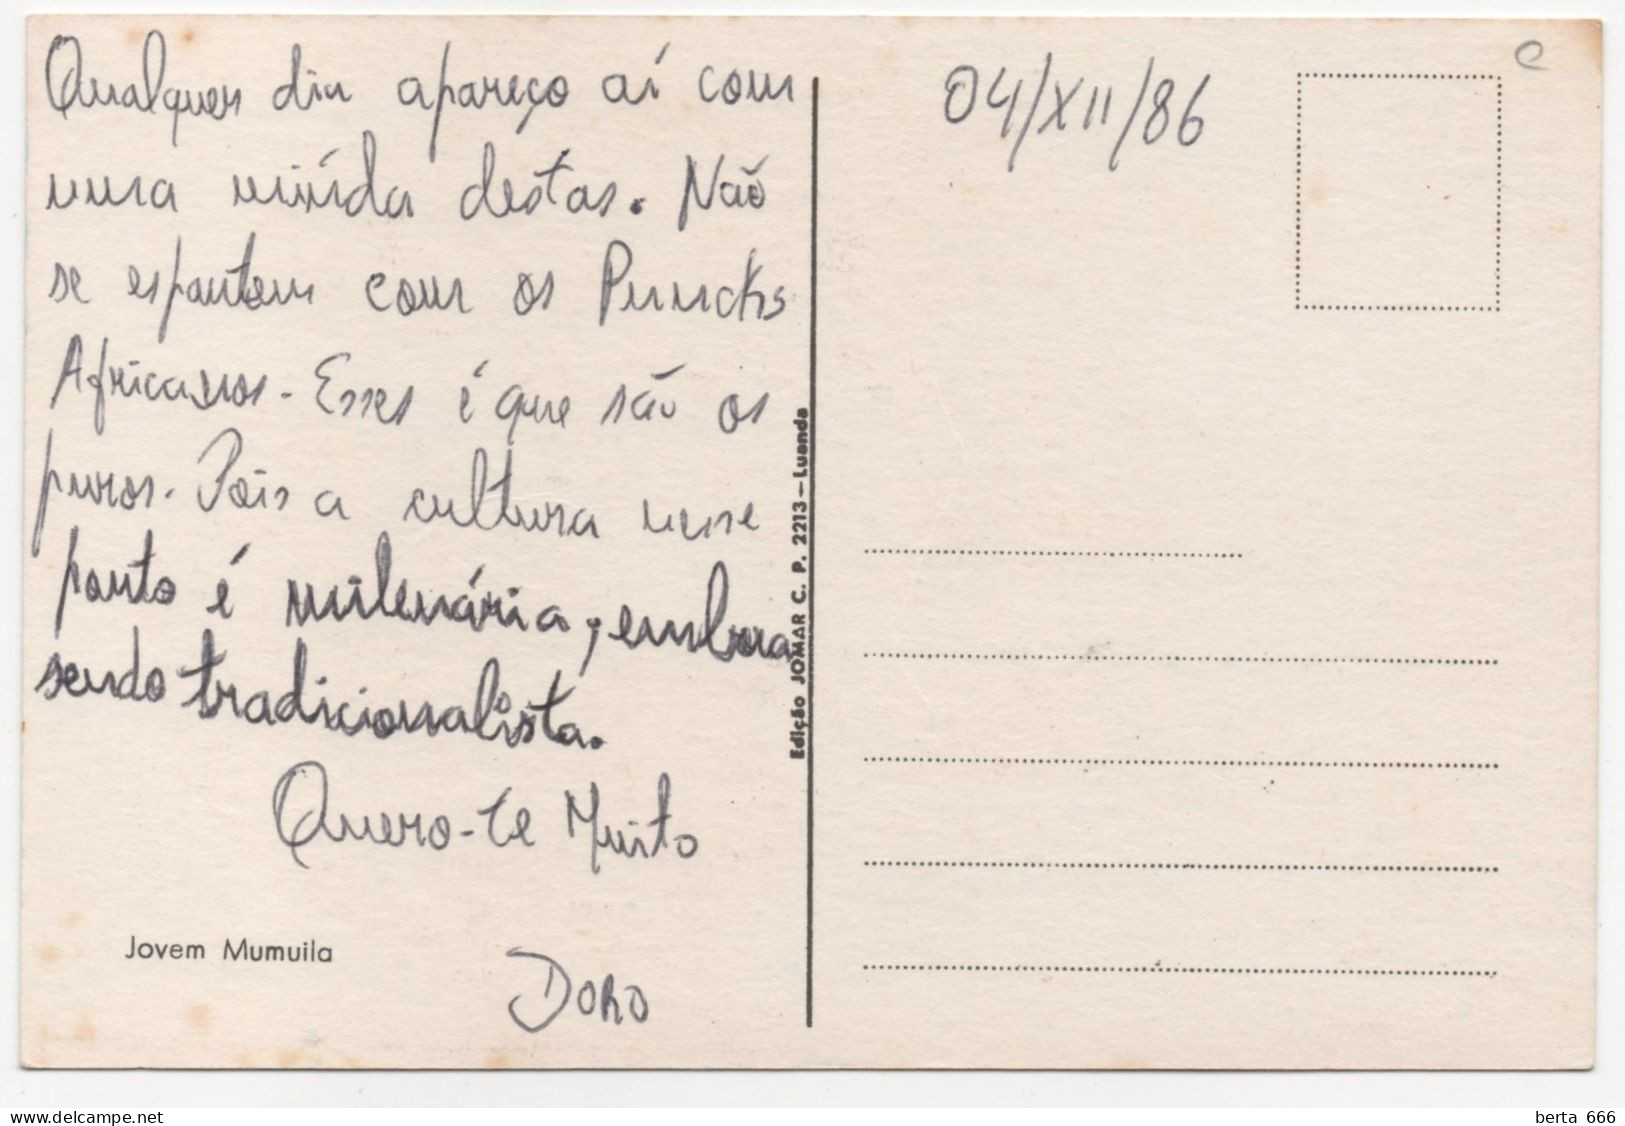 Qualquer dia apareço aí com
uma miúda destas. Não
se espantem com os Puncks
Africanos. Esses é que são os
puros. Pois a cultura nesse
ponto é milenária, embora
sendo tradicionalista.
Quero-te Muito
Doro
Jovem Mumuila
Edição JOMAR C. P. 2213—Luanda
04/XII/86
e
berta 666
delcampe.net